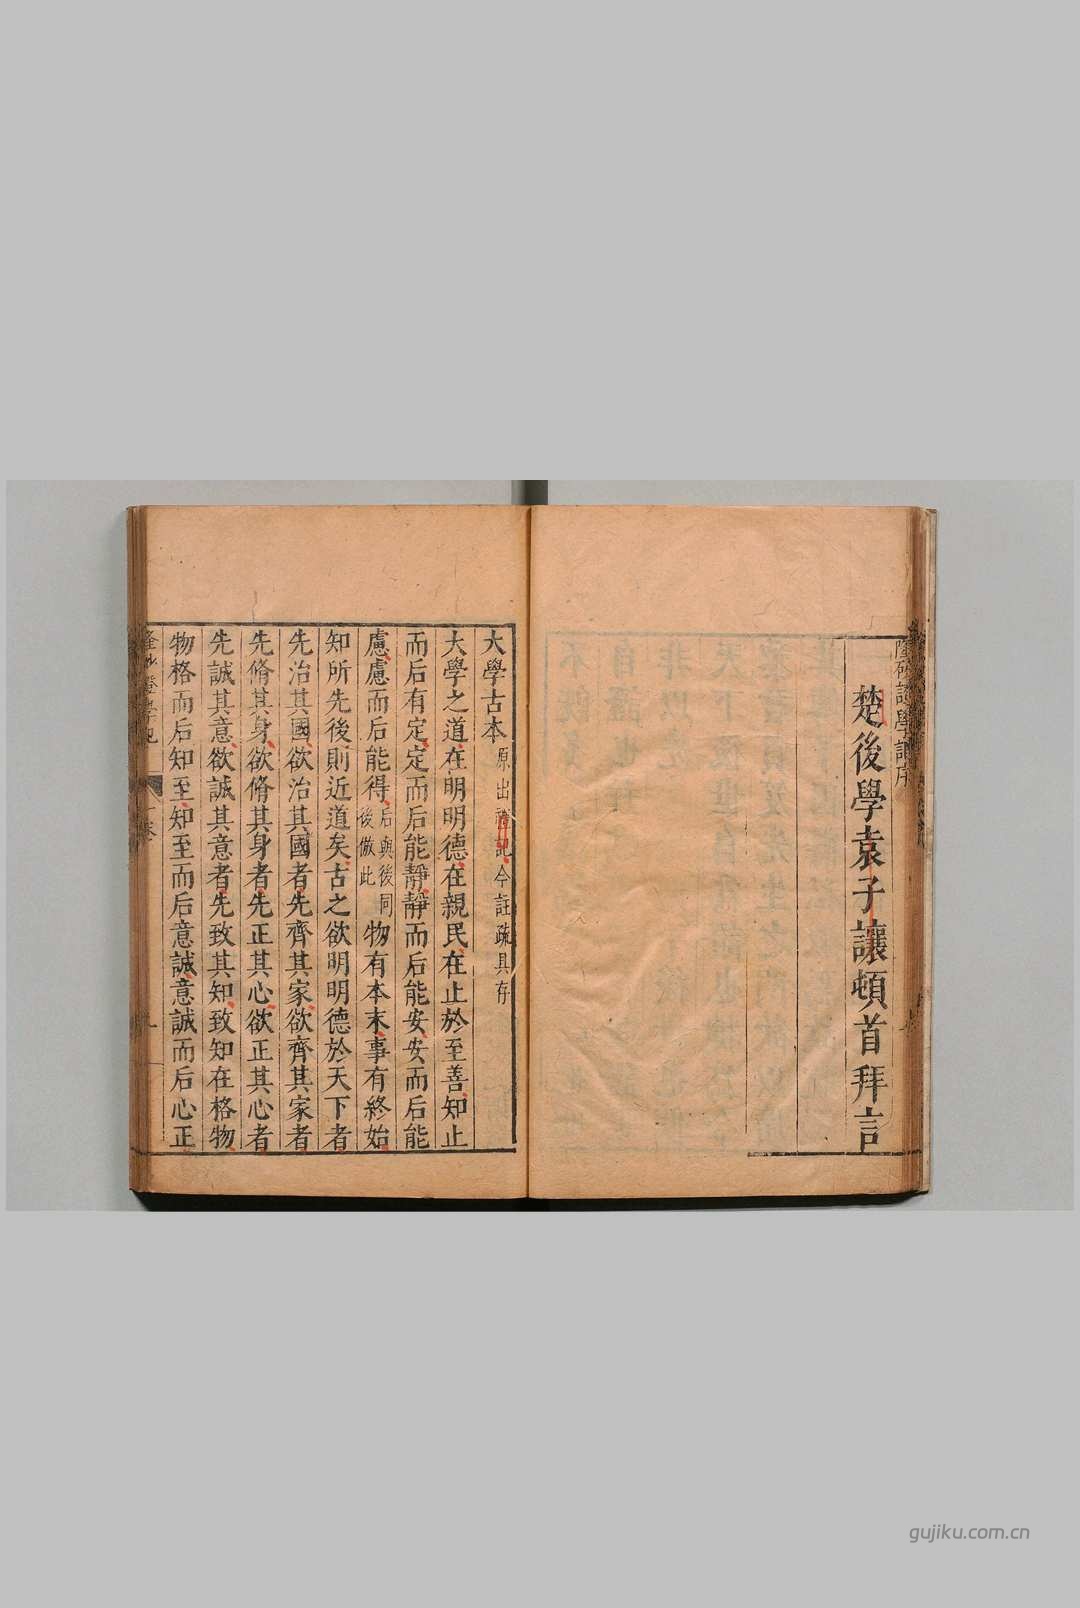 楚後學袁子讓頓首拜言
大學古本原出禮記今註疏具存
大學之道在明明德在親民在止於至善知止
而后有定定而后能靜靜而后能安安而后能
慮慮而后能得后與後同後倣此物有本末事有終始
知所先後則近道矣古之欲明明德於天下者
先治其國欲治其國者先齊其家欲齊其家者
先脩其身欲脩其身者先正其心欲正其心者
先誠其意欲誠其意者先致其知致知在格物
物格而后知至知至而后意誠意誠而后心正
gujiku.com.cn